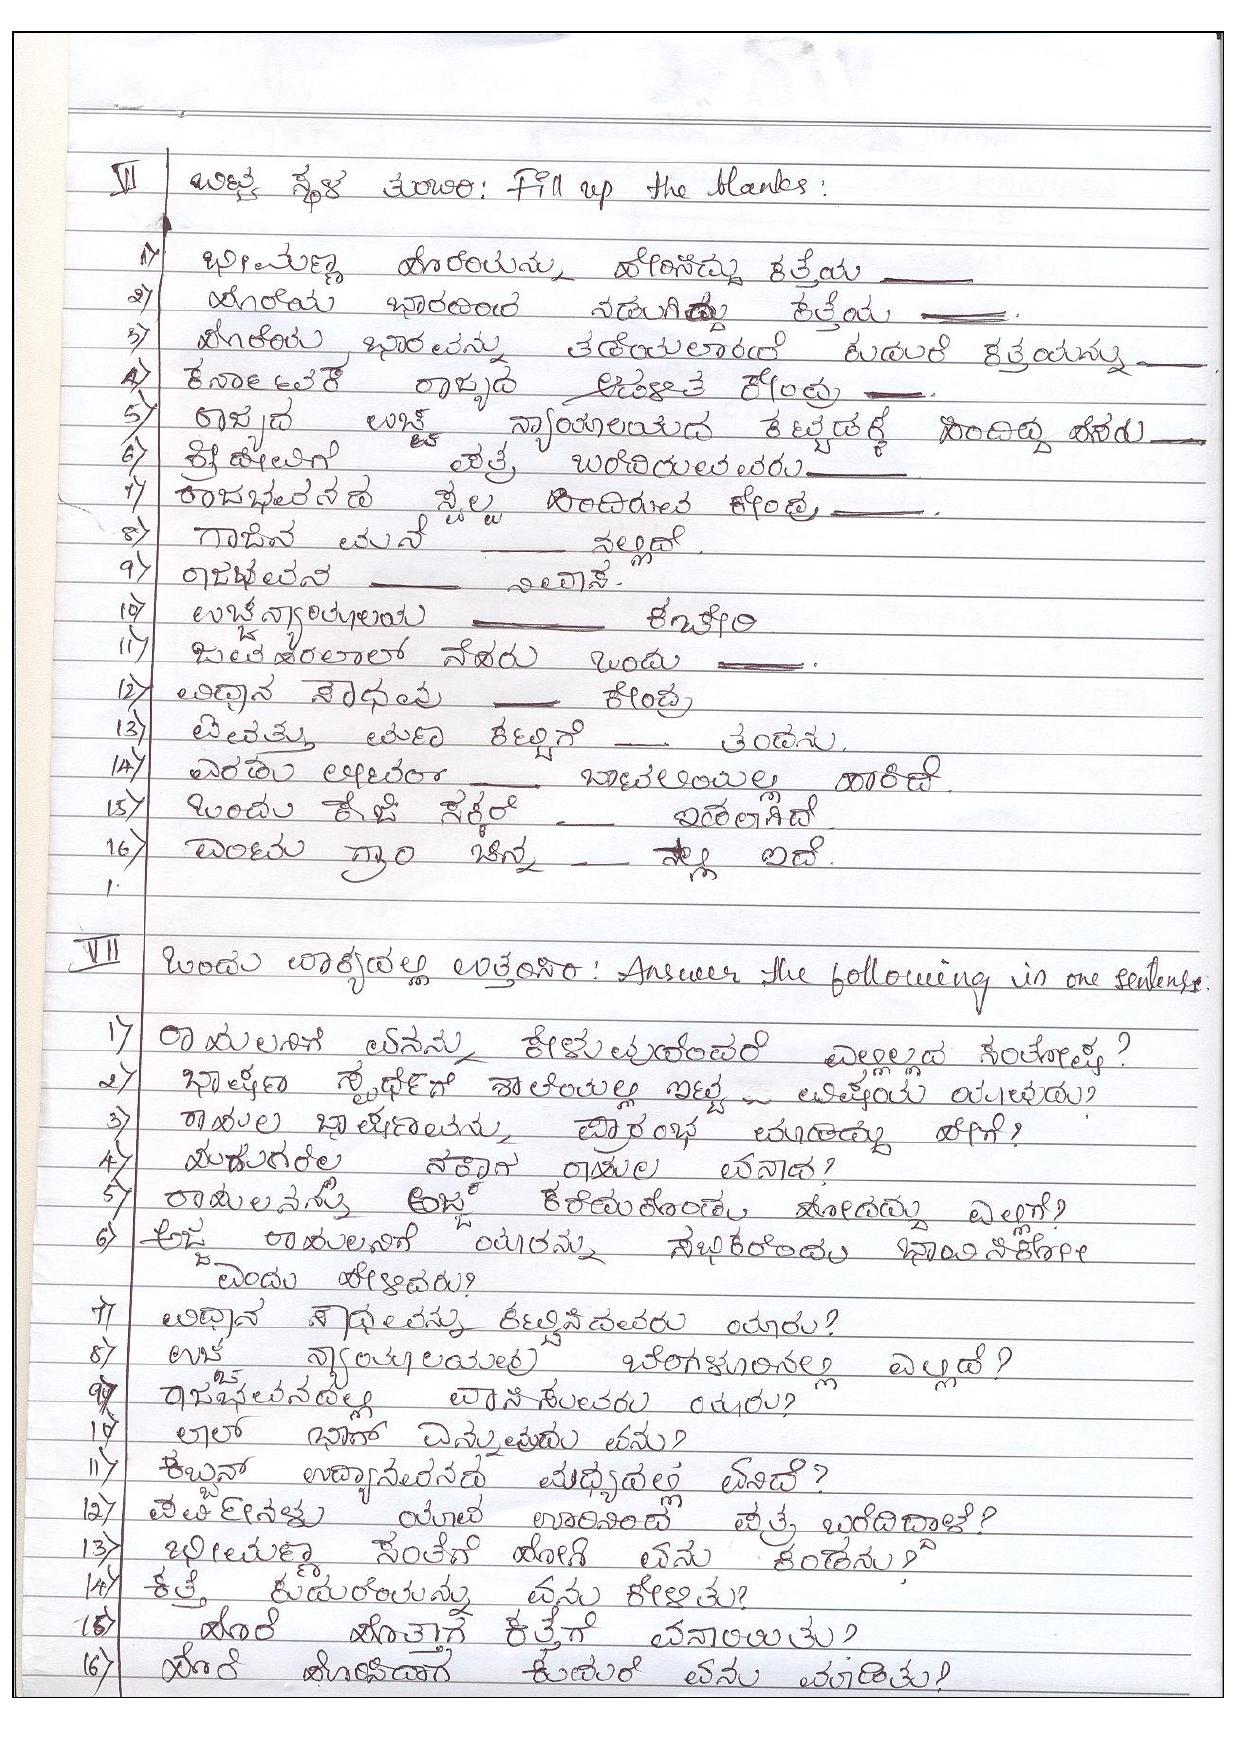 VI ಬಿಟ್ಟ ಸ್ಥಳ ತುಂಬಿರಿ: Fill up the blanks:
1) ಭೀಮಣ್ಣಾ ಹೊರೆಯನ್ನು ಹೇರಿಸಿದ್ದು ಕತ್ತೆಯ ____
2) ಹೊರೆಯ ಭಾರದಿಂದ ನಡುಗಿದ್ದು ಕತ್ತೆಯ ____.
3) ಹೊರೆಯ ಭಾರವನ್ನು ತಡೆಯಲಾರದೆ ಕುದುರೆ ಕತ್ತೆಯನ್ನು ____.
4) ಕರ್ನಾಟಕ ರಾಜ್ಯದ ಆಡಳಿತ ಕೇಂದ್ರ ____.
5) ರಾಜ್ಯದ ಉಚ್ಚ ನ್ಯಾಯಾಲಯದ ಕಟ್ಟಡಕ್ಕೆ ಹಿಂದಿದ್ದ ಹೆಸರು ____
6) ಶ್ರೀದೇವಿಗೆ ಪತ್ರ ಬರೆದಿರುವವರು ____
7) ರಾಜಭವನದ ಸ್ವಲ್ಪ ಹಿಂದಿರುವ ಕೇಂದ್ರ ____.
8) ಗಾಜಿನ ಮನೆ ____ ನಲ್ಲಿದೆ.
9) ರಾಜಭವನ ____ ನಿವಾಸ.
10) ಉಚ್ಚನ್ಯಾಯಾಲಯ ____ ಕಚೇರಿ
11) ಜವಹರಲಾಲ್ ನೆಹರು ಒಂದು ____.
12) ವಿಧಾನ ಸೌಧವು ____ ಕೇಂದ್ರ
13) ಐವತ್ತು ಮಣ ಕಟ್ಟಿಗೆ ____ ತಂದನು.
14) ಎರಡು ಲೀಟರ್ ____ ಬಾಟಲಿಯಲ್ಲಿ ಹಾಕಿದೆ.
15) ಒಂದು ಕೆಜಿ ಸಕ್ಕರೆ ____ ಇಡಲಾಗಿದೆ
16) ಎಂಟು ಗ್ರಾಂ ಚಿನ್ನ ____ ನಲ್ಲಿ ಇದೆ.
VII ಒಂದು ವಾಕ್ಯದಲ್ಲಿ ಉತ್ತರಿಸಿರಿ: Answer the following in one sentense:
1) ರಾಹುಲನಿಗೆ ಏನನ್ನು ಕೇಳುವುದೆಂದರೆ ಎಲ್ಲಿಲ್ಲದ ಸಂತೋಷ?
2) ಭಾಷಣ ಸ್ಪರ್ಧೆಗೆ ಶಾಲೆಯಲ್ಲಿ ಇಟ್ಟ ವಿಷಯ ಯಾವುದು?
3) ರಾಹುಲ ಭಾಷಣವನ್ನು ಪ್ರಾರಂಭ ಮಾಡಿದ್ದು ಹೇಗೆ?
4) ಹುಡುಗರೆಲ್ಲ ನಕ್ಕಾಗ ರಾಹುಲ ಏನಾದ?
5) ರಾಹುಲನನ್ನು ಅಜ್ಜ ಕರೆದುಕೊಂಡು ಹೋದದ್ದು ಎಲ್ಲಿಗೆ?
6) ಅಜ್ಜ ರಾಹುಲನಿಗೆ ಯಾರನ್ನು ಸಭಿಕರೆಂದು ಭಾವಿಸಿಕೋ
ಎಂದು ಹೇಳಿದರು?
7) ವಿಧಾನ ಸೌಧವನ್ನು ಕಟ್ಟಿಸಿದವರು ಯಾರು?
8) ಉಚ್ಚ ನ್ಯಾಯಾಲಯವು ಬೆಂಗಳೂರಿನಲ್ಲಿ ಎಲ್ಲಿದೆ?
9) ರಾಜಭವನದಲ್ಲಿ ವಾಸಿಸುವವರು ಯಾರು?
10) ಲಾಲ್ ಭಾಗ್ ಎನ್ನುವುದು ಏನು?
11) ಕಬ್ಬನ್ ಉದ್ಯಾನವನದ ಮಧ್ಯದಲ್ಲಿ ಏನಿದೆ?
12) ಪರ್ವೀನಳು ಯಾವ ಊರಿನಿಂದ ಪತ್ರ ಬರೆದಿದ್ದಾಳೆ?
13) ಭೀಮಣ್ಣಾ ಸಂತೆಗೆ ಹೋಗಿ ಏನು ತಂದನು?
14) ಕತ್ತೆ ಕುದುರೆಯನ್ನು ಏನು ಕೇಳಿತು?
15) ಹೊರೆ ಹೊತ್ತಾಗ ಕತ್ತೆಗೆ ಏನಾಯಿತು?
16) ಹೊರೆ ಹೊರಿಸಿದಾಗ ಕುದುರೆ ಏನು ಮಾಡಿತು?